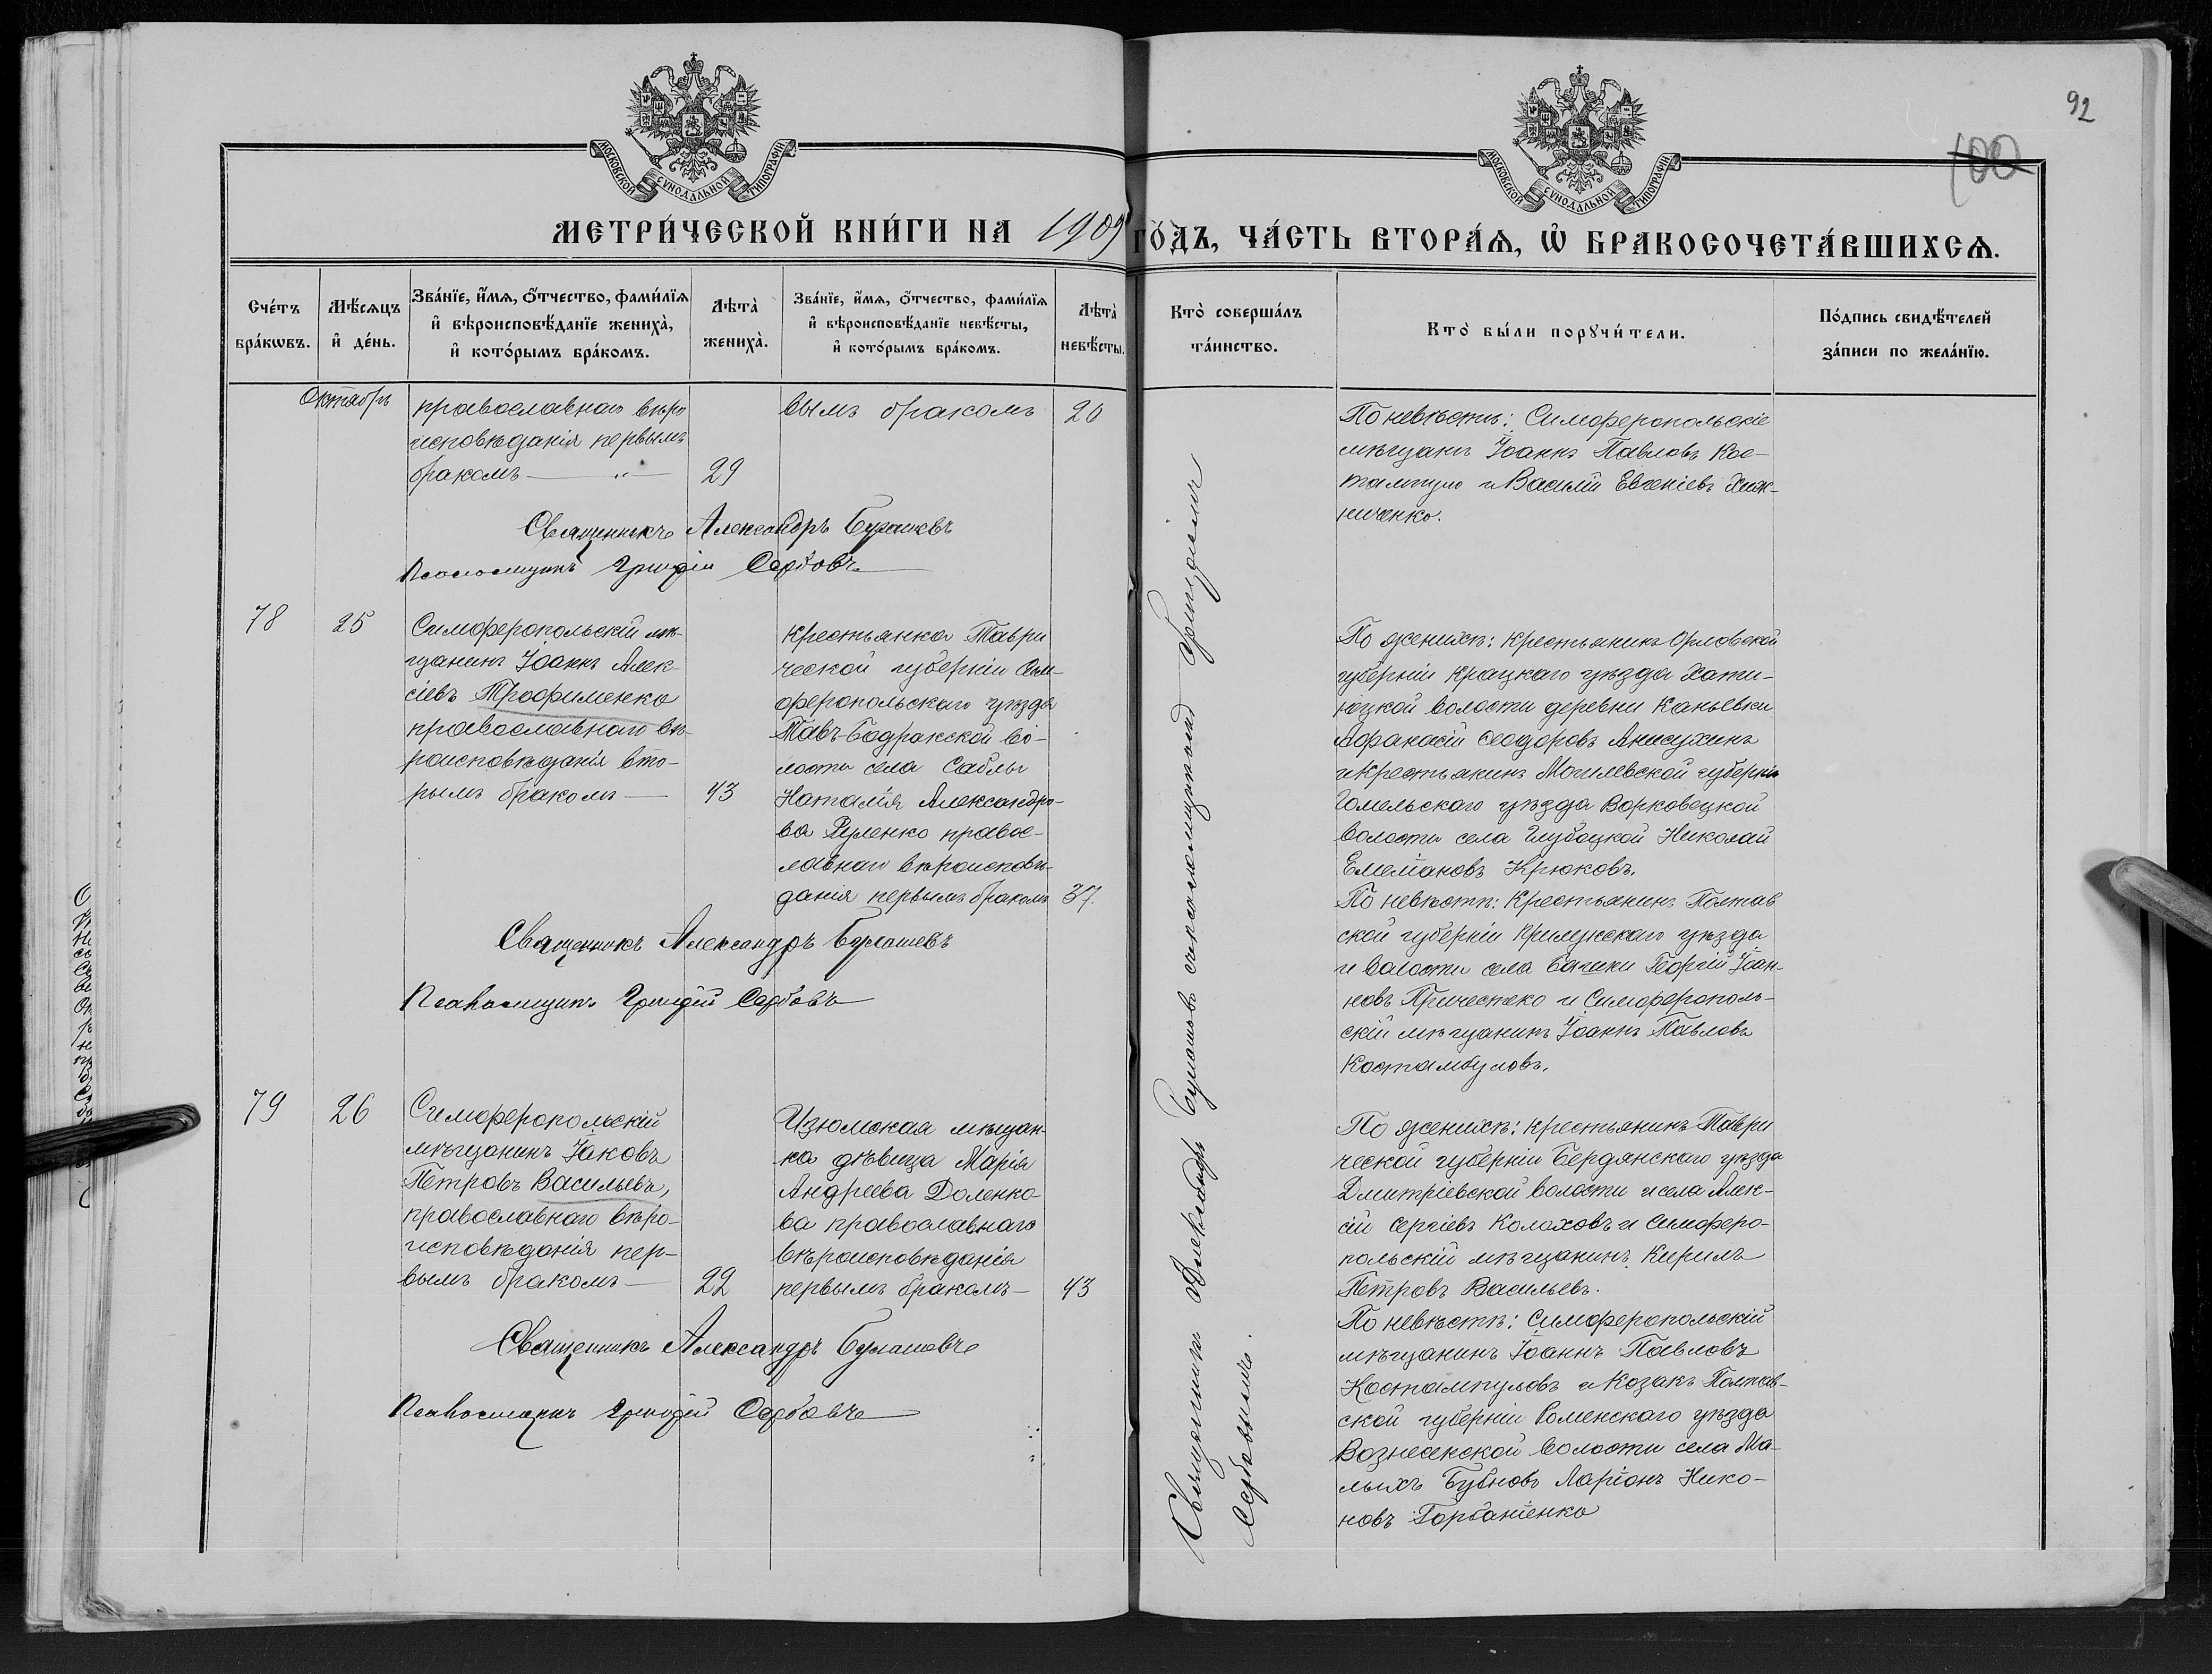 92
100
МОСКОВСКОЙ СѴНОДАЛЬНОЙ ТИПОГРАФІИ
МОСКОВСКОЙ СѴНОДАЛЬНОЙ ТИПОГРАФІИ
МЕТРИ́ЧЕСКОЙ КНИ́ГИ НА 1909 ГО́ДЪ, ЧА́СТЬ ВТОРА́Ѧ, Ѽ БРАКОСОЧЕТА́ВШИХСѦ.
Сче́тъ бра́кѡвъ.
Мѣ́сяцъ и де́нь.
Зва́нїе, и́мя, о́тчество, фами́лїя и вѣроисповѣ́данїе жениха̀, и кото́рымъ бра́комъ.
Лѣта̀ жениха̀.
Зва́нїе, и́мя, о́тчество, фами́лїя и вѣроисповѣ́данїе невѣ́сты, и кото́рымъ бра́комъ.
Лѣта̀ невѣ́сты.
Кто̀ соверша́лъ та́инство.
Кто̀ бы́ли порꙋчи́тели.
По́дпись свидѣ́телей за́писи по жела́нїю.
Октябрь
православнаго вѣро
исповѣданія первымъ
бракомъ — " — 29
вымъ бракомъ 20
Священникъ Александръ Булашевъ
Псаломщикъ Григорій Сербовъ
По невѣстѣ: Симферопольскіе
мѣщане Іоаннъ Павловъ Кос-
тампуло и Василій Евгеніевъ Хиж-
ниченко.
78 25
Симферопольскій мѣ-
щанинъ Іоаннъ Алек-
сіевъ Трофименко
православнаго вѣ-
роисповѣданія вто-
рымъ бракомъ — 43
Крестьянка Таври
ческой губерніи Сим-
феропольскаго уѣзда
Тавъ-Бадракской во-
лости села Саблы
Наталія Александро-
ва Руленко правос-
лавнаго вѣроисповѣ-
данія первымъ бракомъ 37.
Священникъ Александръ Булашевъ
Псаломщикъ Григорій Сербовъ
По женихѣ: Крестьянинъ Орловской
губерніи уѣзда
волости деревни Каньевки
Афанасій Ѳеодоровъ Анисухинъ
и Крестьянинъ Могилевской губерніи
Гомельскаго уѣзда
волости села Глубоцкой Николай
Емеліановъ Крюковъ.
По невѣстѣ: Крестьянинъ Полтав
ской губерніи уѣзда
и волости села Георгій Іоан-
новъ и Симферополь-
скій мѣщанинъ Іоаннъ Павловъ
Костамбуловъ.
79 26
Симферопольскій
мѣщанинъ Іаковъ
Петровъ Васильевъ,
православнаго вѣро-
исповѣданія пер-
вымъ бракомъ — 22
Изюмская мѣщан-
ка дѣвица Марія
Андреева Доленко-
ва православнаго
вѣроисповѣданія
первымъ бракомъ — 43
Священникъ Александръ Булашевъ
Псаломщикъ Григорій Сербовъ
По женихѣ: крестьянинъ Таври
ческой губерніи Бердянскаго уѣзда
Дмитріевской волости и села Алек-
сій Сергіевъ Колоховъ и Симферо-
польскій мѣщанинъ Кирилъ
Петровъ Васильевъ.
По невѣстѣ: Симферопольскій
мѣщанинъ Іоаннъ Павловъ
Костампуловъ и Козакъ Полтав-
ской губерніи Роменскаго уѣзда
Вознесенской волости села Ма-
лыхъ Бубновъ Ларіонъ Нико-
новъ Горбатенко
Священникъ Александръ Булашевъ съ псаломщикомъ Григоріемъ
Сербовымъ.